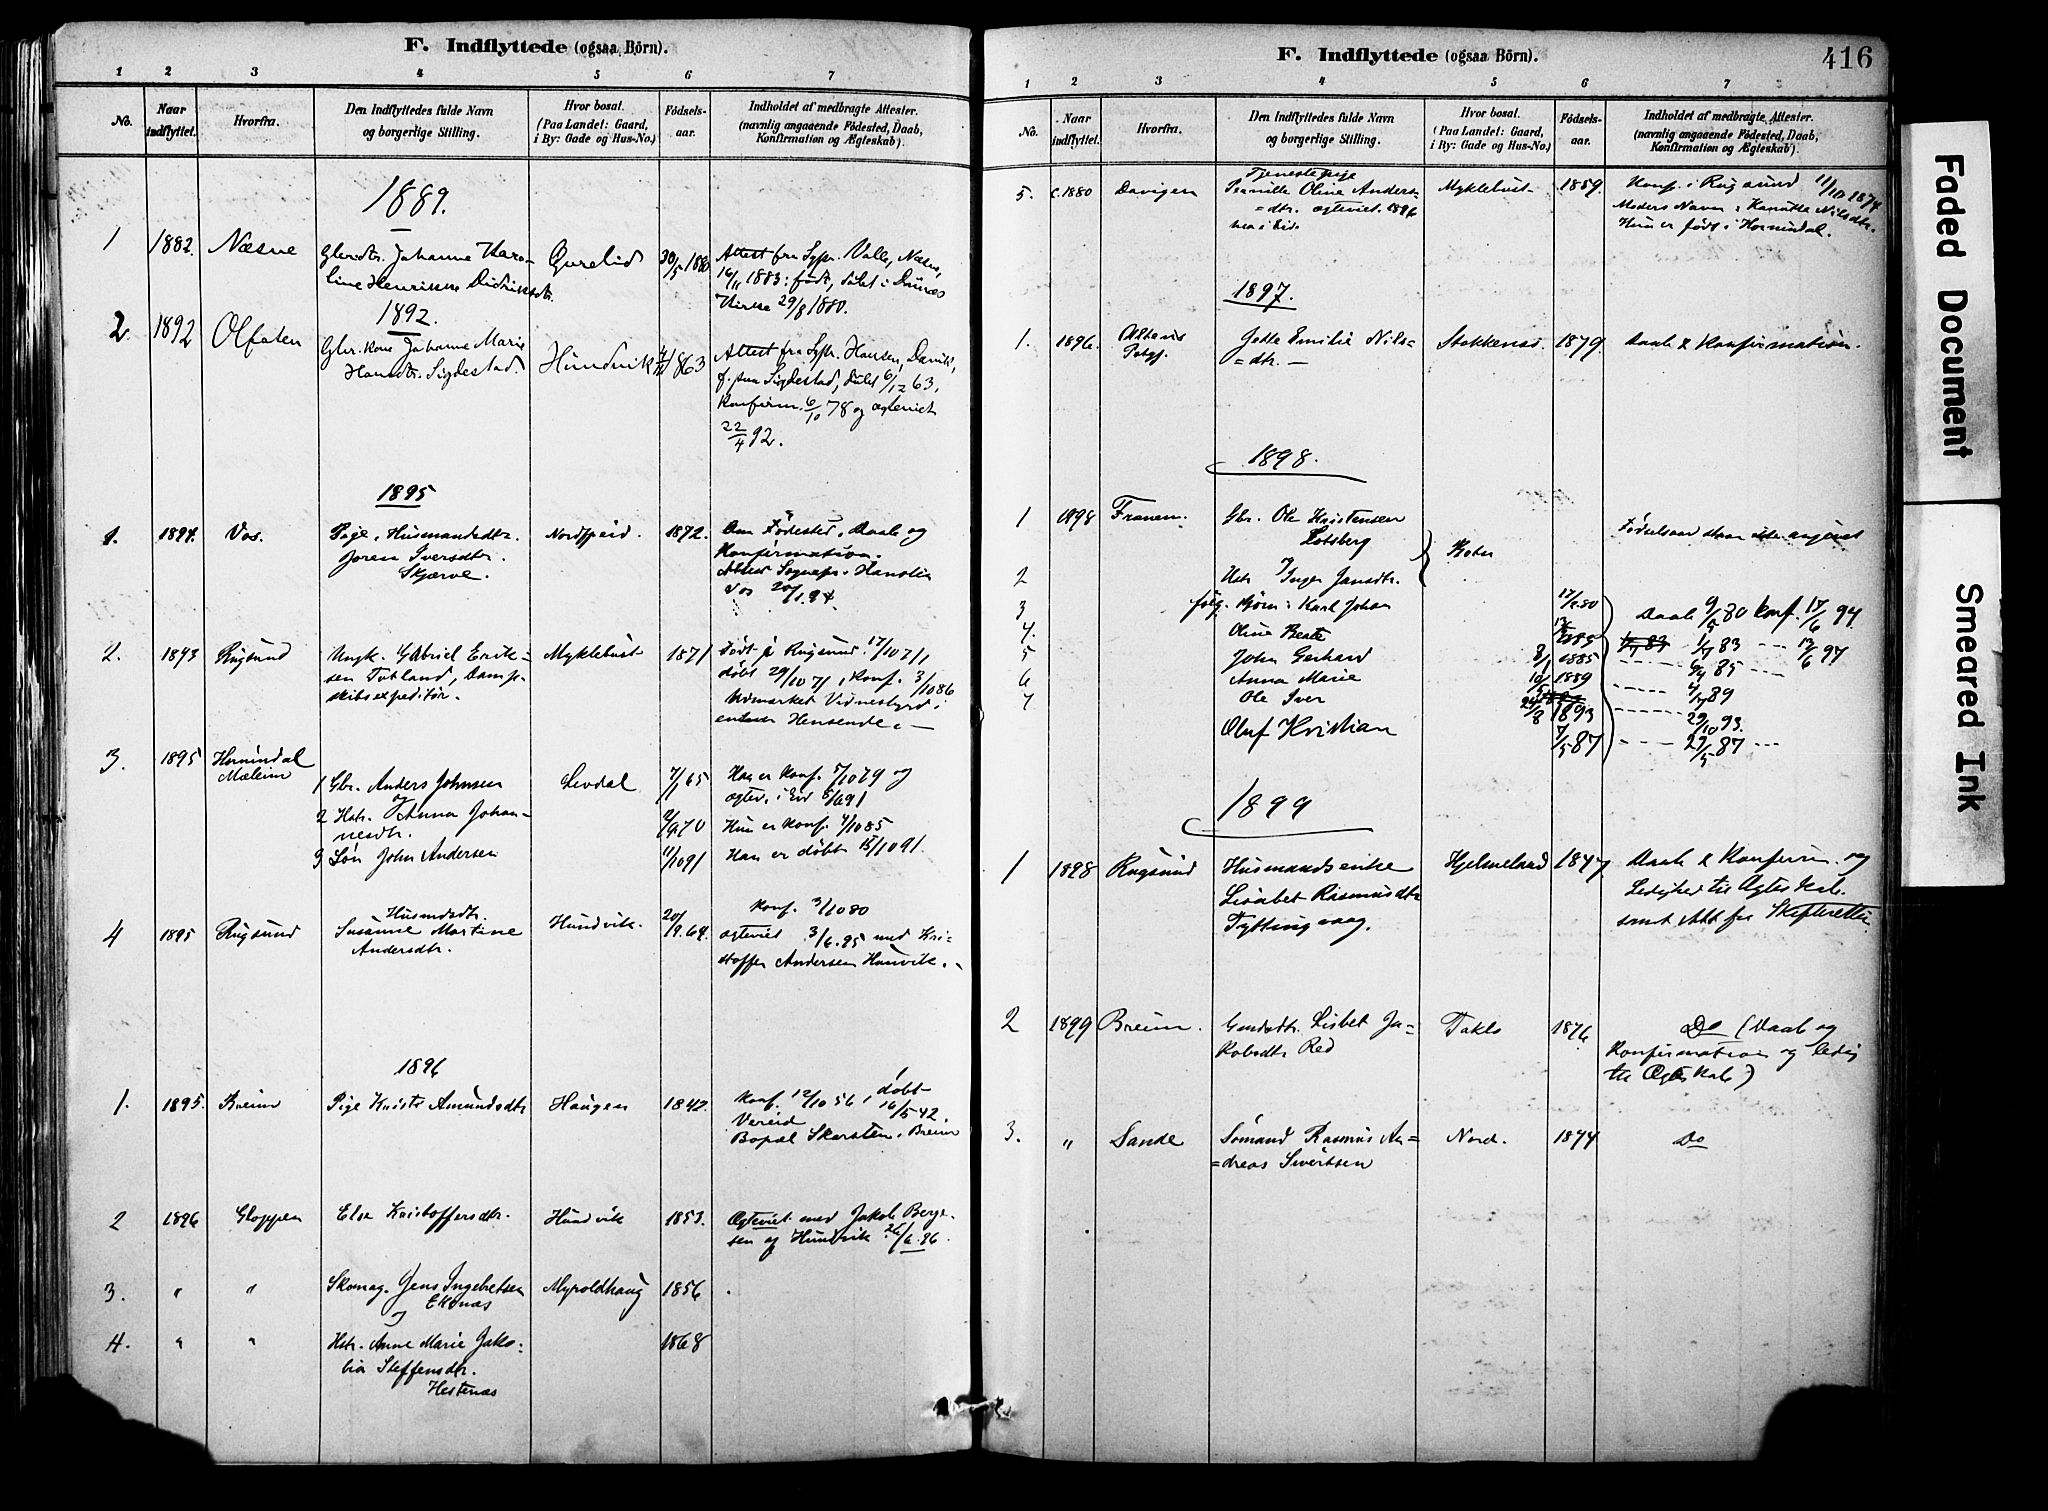 F. Indflyttede (ogsaa Börn).
1 2 3 4 5 6 7
No.
Naar indflyttet.
Hvorfra.
Den Indflyttedes fulde Navn
og borgerlige Stilling.
Hvor bosat.
(Paa Landet: Gaard,
i By: Gade og Hus-No.)
Fødsels-
aar.
Indholdet af medbragte Attester.
(navnlig angaaende Fødested, Daab,
Konfirmation og Ægteskab).
1889.
1 1882. Næsne
Johanne Karo-
line Henrikke Didriksdtr.
30/5 1880
Attest fra Sgpr. Valle, Næsne,
16/11 1883: født, døbt i Dønnæs
Kirke 29/8 1880.
1892.
2 1892
Gbr. Kone Johanne Marie
Hansdtr. Sigdestad.
Hundvik
1863
Attest fra Sgpr. Hansen, Davik,
f. paa Sigdestad, døbt 6/12 63,
Konfirm. 6/10 78 og ægteviet
22/4 92.
1895
1. 1894. Vos.
Pige, Husmandsdtr.
Joren Iversdtr.
Skjærve.
Nordfjoeid. 1872.
Om Fødested, Daab og
Konfirmation.
Attest Sognepr. Hanstein
Vos 20/1.94.
2. 1893 Rugsund
Ungk. Gabriel Erik-
sen Totland, Damp-
skibsexpeditør.
Myklebust 1871
Født i Rugsund 17/10 71,
døbt 29/10 71, Konf. 3/10 86
Udmærket Vidnesbyrd i
enhver Henseende.
3. 1895 Hornindal
1 Gbr. Anders Johnsen
og
2 Hstr. Anna Johan-
nesdtr.
3 Søn John Andersen
Levdal
7/1 65
2/9 70
11/10 91
Han er konf. 5/10 79 og
ægtev. i Eid 5/6 91
Hun er konf. 4/10 85
Han er døbt 15/10 91.
4 1895 Rugsund
Husmdsdtr.
Susanne Martine
Andersdtr.
Hundvik. 20/9.64.
Konf. 3/10 80
ægteviet 3/6.95 med Kri-
stoffer Andersen Hunvik.
1896
1. 1895. Breim
Pige Kristi Amundsdtr.
Haugen 1842.
Konf. 12/10 56, døbt
16/5 42.
Vereid
Bopæl Skarsten, Breim
2 1896 Gloppen
Else Kristoffersdtr.
Hundvik 1853.
Ægteviet med Jakob Berge-
sen af Hundvik 26/6.86.
3. " "
Skomag. Jens Ingebretsen
og Ekenæs
Myroldhaug 1856
4. " "
Hstr. Anne Marie Jako-
bia Steffensdtr.
Hestenæs
1868
F. Indflyttede (ogsaa Börn).
416
1 2 3 4 5 6 7
No.
Naar indflyttet.
Hvorfra.
Den Indflyttedes fulde Navn
og borgerlige Stilling.
Hvor bosat.
(Paa Landet: Gaard,
i By: Gade og Hus-No.)
Fødsels-
aar.
Indholdet af medbragte Attester.
(navnlig angaaende Fødested, Daab,
Konfirmation og Ægteskab).
5. c.1880 Daviken
Tjenestepige
Pernille Oline Anders-
=dtr. ægteviet 1896
Myklebust 1859.
Konf. i Rugsund 11/10 1874
Moders Navn: Kanutte Nilsdtr.
Hun er født i Hornindal.
1897.
1. 1896.
Emilie Nils-
=dtr. —
Stokkenæs. 1879.
Daab & Konfirmation.
1898.
1 1898
Gbr. Ole Kristensen
Lotsberg
Fødselsaar staar ikke angivet
2 Hstr. Inger Jansdtr.
3 følg. Børn: Karl Johan
4. Oline Beate
5 John Gerhard
6 Anna Marie
7 Ole Iver
Oluf Kristian
1885
1889
1893
7/5 87
Daab 9/5 80 konf. 17/6 94.
1/7 83 - - - 13/6 97
9/4 85
4/7 89
29/10 93.
29/5 87
1899
1 1898 Rugsund
Husmandsenke
Lisabet Rasmusdtr.
Tyttingvaag.
Hjelmeland 1847
Daab & Konfirm. og
Ledighed til Ægteskab.
samt Att fra Skifteretten
2 1899 Breim.
Gmdsdtr. Lisbet Ja-
kobsdtr. Red
Taklo 1876
Do (Daab og
Konfirmation og ledig
til Ægteskab)
3. " Sande
Sømand Rasmus An-
=dreas Sivertsen
Nord. 1874
Do
Faded Document
Smeared Ink